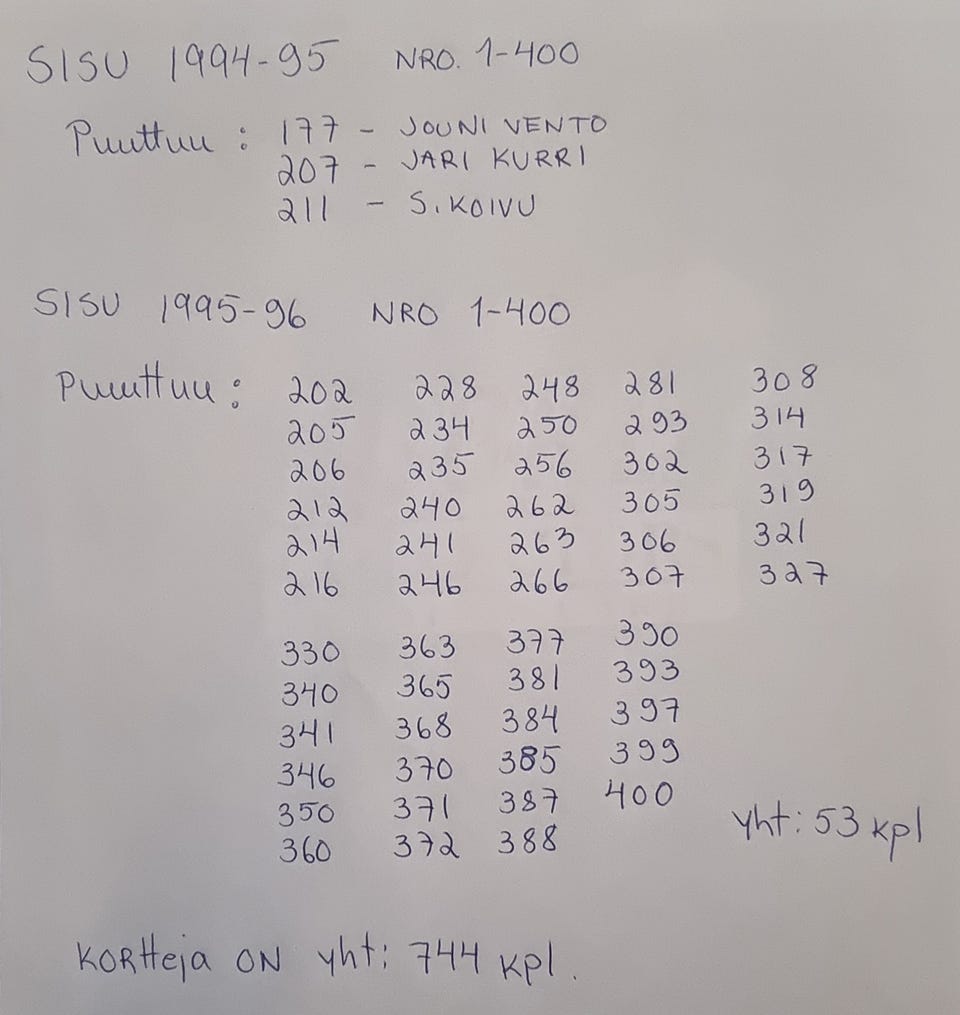 SISU 1994-95 NRO. 1-400
Puuttuu : 177 - JOUNI VENTO
207 - JARI KURRI
211 - S. KOIVU
SISU 1995-96 NRO 1-400
Puuttuu : 202 228 248 281 308
205 234 250 293 314
206 235 256 302 317
212 240 262 305 319
214 241 263 306 321
216 246 266 307 327
330 363 377 390
340 365 381 393
341 368 384 397
346 370 385 399
350 371 387 400
360 372 388
yht: 53 kpl
KORTTeja ON yht: 744 kpl.